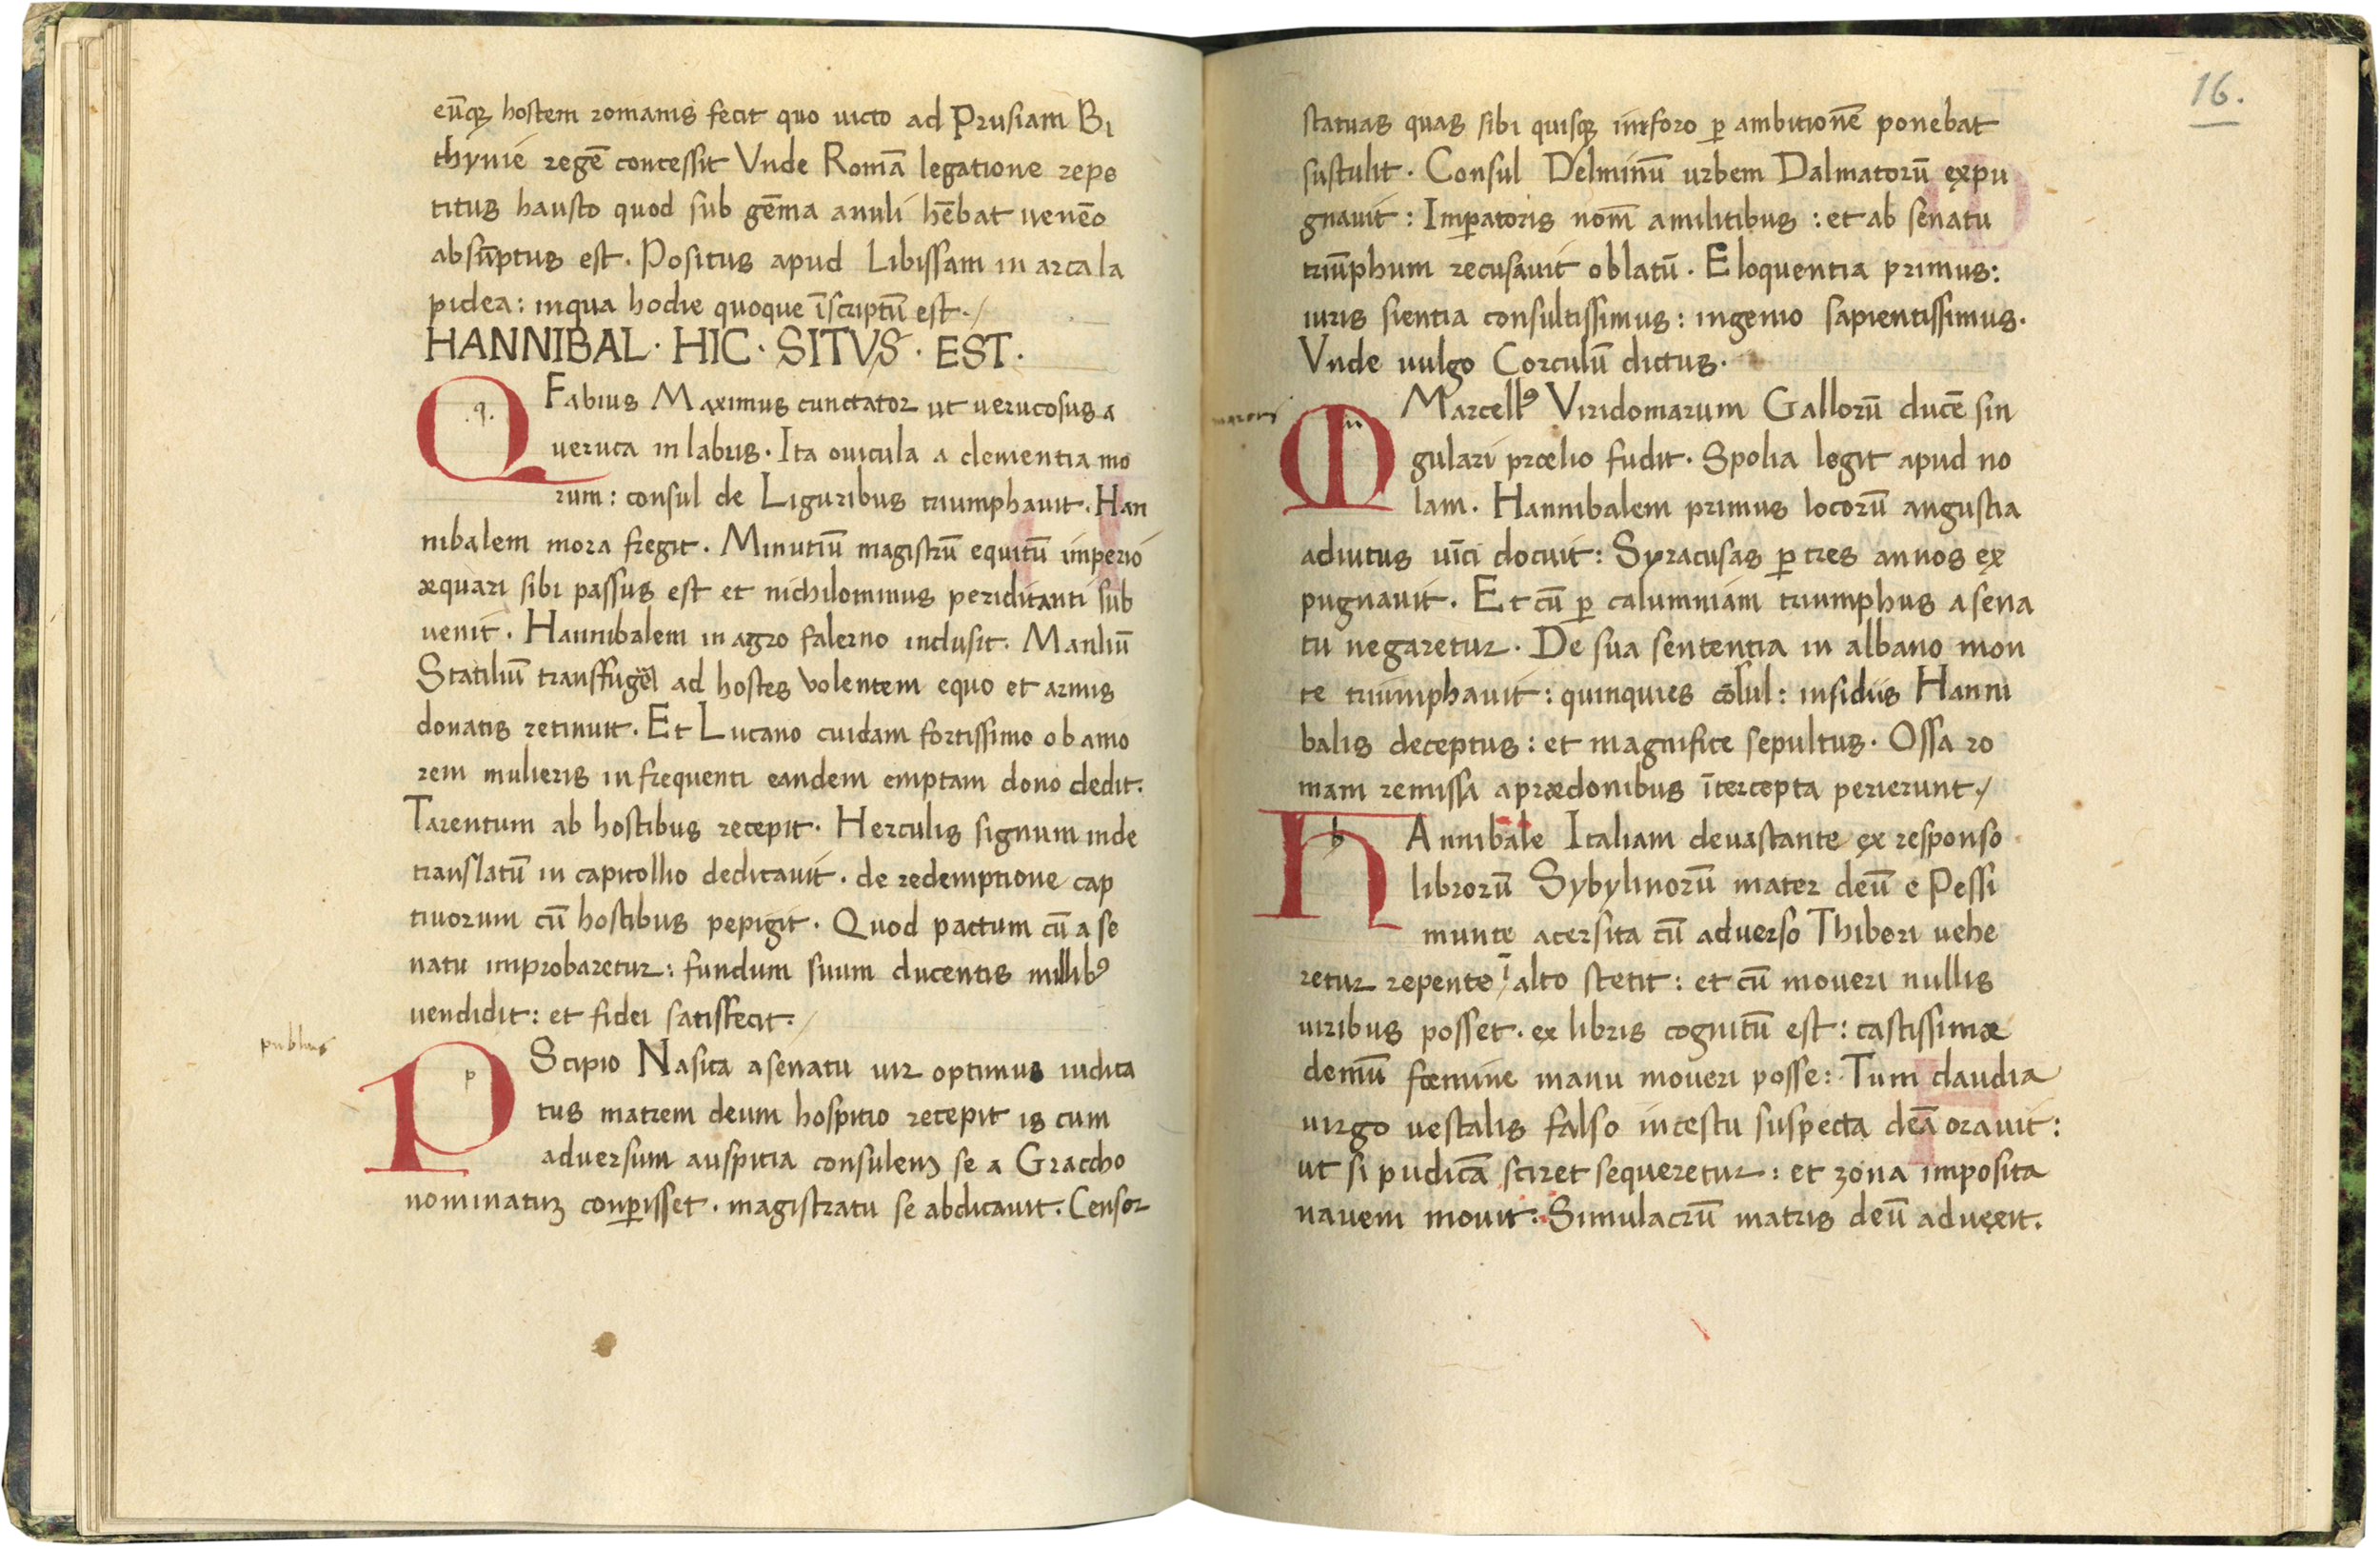 eūq̄ hostem romanis fecit quo uicto ad Prusiam Bi
thynie regē concessit Vnde Romā legatione repe
titus hausto quod sub gēma anuli hēbat uenēo
absūptus est. Positus apud Libissam in arca la
pidea: inqua hodie quoque īscriptū est./
HANNIBAL · HIC · SITVS · EST ·
Q .q. Fabius Maximus cunctator ut uerucosus a
ueruca in labris. Ita ouicula a clementia mo
rum: consul de Liguribus triumphauit. Han
nibalem mora fregit. Minutiū magistrū equitū imperio
æquari sibi passus est et nichilominus periclitanti sub
uenit. Hannibalem in agro falerno inclusit. Manliū
Statiliū ad hostes volentem equo et armis
donatis retinuit. Et Lucano cuidam fortissimo ob amo
rem mulieris infrequenti eandem emptam dono dedit.
Tarentum ab hostibus recepit. Herculis signum inde
translatū in capitollio dedicauit. de redemptione cap
tiuorum cū hostibus pepigit. Quod pactum cū a se
natu improbaretur: fundum suum ducentis millibꝰ
uendidit: et fidei satisfecit./
publius
P p Scipio Nasica asenatu uir optimus iudica
tus matrem deum hospitio recepit is cum
aduersum auspitia consulem se a Graccho
nominatuꝫ conꝑisset. magistratu se abdicauit. Censor
16.
statuas quas sibi quisqꝫ inforo ꝑ ambitionē ponebat
sustulit. Consul Delminū urbem Dalmatorū expu
gnauit: Imꝑatoris nom̄ amilitibus: et ab senatu
triūphum recusauit oblatū. Eloquentia primus:
iuris sientia consultissimus: ingenio sapientissimus.
Vnde uulgo Corculū dictus.
M m Marcellꝰ Viridomarum Gallorū ducē sin
gulari prœlio fudit. Spolia legit apud no
lam. Hannibalem primus locorū angustia
adiutus uīci docuit: Syracusas ꝑ tres annos ex
pugnauit. Et cū ꝑ calumniam triumphus asena
tu negaretur. De sua sententia in albano mon
te triumphauit: quinquies cōsul: insidiis Hanni
balis deceptus: et magnifice sepultus. Ossa ro
mam remissa aprædonibus ītercepta perierunt./
H h Annibale Italiam deuastante ex responso
librorū Sybylinorū mater deū e Pessi
munte acersita cū aduerso Thiberi uehe
retur repente ī alto stetit: et cū moueri nullis
uiribus posset. ex libris cognitū est: castissimæ
demū fœmine manu moueri posse: Tum claudia
uirgo uestalis falso incestu suspecta deā orauit:
ut si pudicā sciret sequeretur: et zona imposita
nauem mouit. Simulacrū matris deū aduexit.